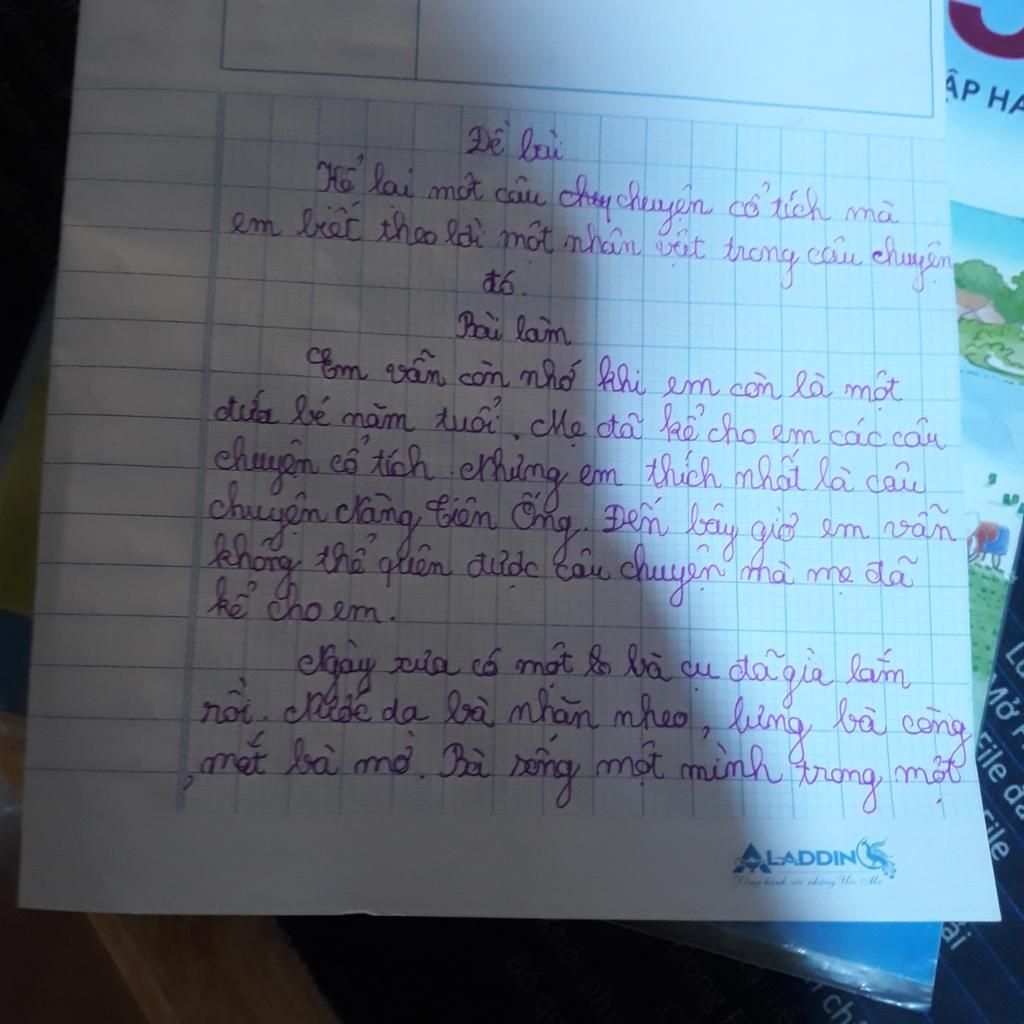 Đề bài
Kể lai một câu chuy chuyện cổ tích mà
em biết theo lời một nhân vật trong câu chuyện
đó.
Bài làm
Em vẫn còn nhớ khi em còn là một
đứa bé năm tuổi. Mẹ đã kể cho em các câu
chuyện cổ tích. Nhưng em thích nhất là câu
chuyện Nàng tiên Ống. Đến bây giờ em vẫn
không thể quên được câu chuyện mà mẹ đã
kể cho em.
Ngày xửa có một bà cụ đã già lắm
rồi. da bà nhăn nheo, lưng bà còng
, mắt bà mờ. Bà sống một mình trong một
ALADDIN
Đồng hành với những Ước Mơ
ẬP HA
Mở
File đã
File